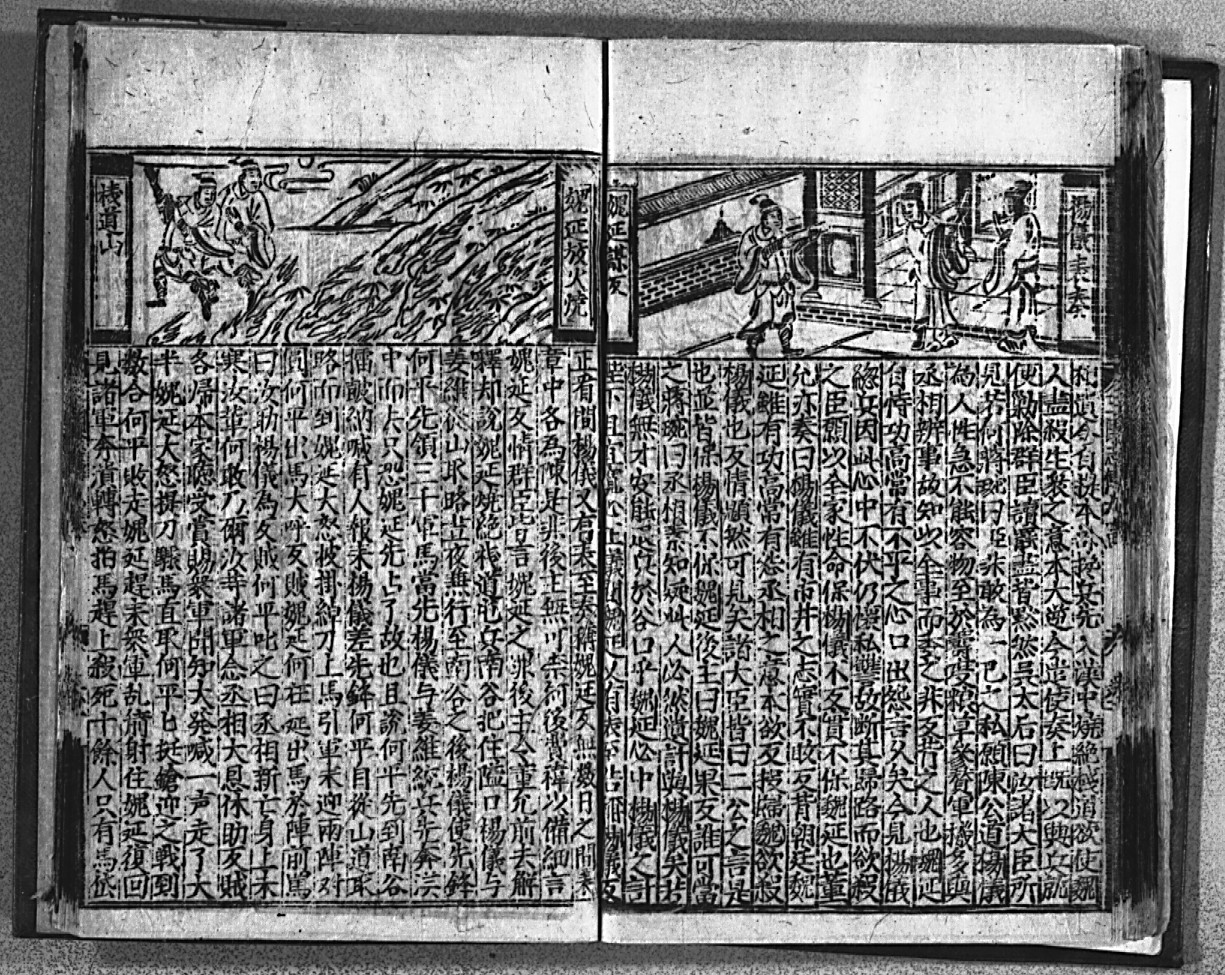 楊儀表奏
魏延謀反
相遺令自投本
人盡殺生眾之意本大逆今遣使奏上既以興兵就
使勦除群臣讀罷盡皆默然吳太后曰汝諸大臣所
見若何蔣琬曰臣非敢為一己之私願陳公道楊儀
為人性急不能容物至於籌度糧草參贊軍機多與
丞相辨事故知以全事而委之非反背之人也魏延
自恃功高常有不平之心口出怨言久矣今見楊儀
總兵因此心中不伏仍懷私讐故斷其歸路而欲殺
之臣願以全家性命保楊儀不反實不保魏延也董
允亦奏曰楊儀雖有市井之志實不敢反背朝廷魏
延雖有功高常有怨丞相之意本欲反投歸魏欲殺
楊儀也反情顯然可見矣諸大臣皆曰二公之言是
也並皆保楊儀不保魏延後主曰魏延果反誰可當
之蔣琬曰丞相素知延此人必然遺計與楊儀矣若
楊儀無才安能退兵於谷口乎魏延必中楊儀之計
魏延放火燒
棧道山
正看間楊儀又有表至奏稱魏延反無數日之間表
章中各為陳是非後主無可柰何後費禕以備細言
魏延反情群臣皆言魏延之罪後主令董允前去解
釋却說魏延燒絕棧道屯兵南谷把住隘口楊儀与
姜維從山水略晝夜無行至南谷之後楊儀使先鋒
何平先領三千軍馬當先楊儀与姜維總兵先奔漢
中而去只恐魏延先占了故也且說何平先到南谷
擂鼓納喊有人報來楊儀差先鋒何平自從山道取
路而到魏延大怒披掛綽刀上馬引軍來迎兩陣對
圓何平出馬大呼反賊魏延何在延出馬於陣前罵
曰汝助楊儀為反賊何平叱之曰丞相新亡身上未
寒汝輩何敢乃爾汝等諸軍念丞相大恩休助反賊
各歸本家聽受賞賜眾軍聞知大發喊一声走了大
半魏延大怒提刀驟馬直取何平平挺鎗迎之戰到
數合何平敗走魏延趕來眾軍乱箭射住魏延復回
見諸軍奔潰轉怒拍馬趕上殺死十餘人只有馬岱